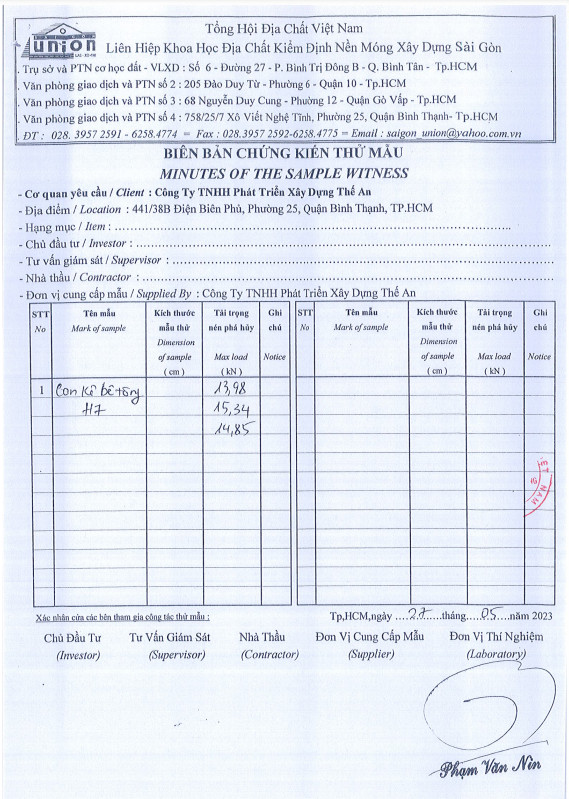 union
LAS-XD 498
Tổng Hội Địa Chất Việt Nam
Liên Hiệp Khoa Học Địa Chất Kiểm Định Nền Móng Xây Dựng Sài Gòn
. Trụ sở và PTN cơ học đất - VLXD : Số 6 - Đường 27 - P. Bình Trị Đông B - Q. Bình Tân - Tp.HCM
. Văn phòng giao dịch và PTN số 2 : 205 Đào Duy Từ - Phường 6 - Quận 10 - Tp.HCM
. Văn phòng giao dịch và PTN số 3 : 68 Nguyễn Duy Cung - Phường 12 - Quận Gò Vấp - Tp.HCM
. Văn phòng giao dịch và PTN số 4 : 758/25/7 Xô Viết Nghệ Tĩnh, Phường 25, Quận Bình Thạnh- Tp.HCM
. ĐT : 028. 3957 2591 - 6258.4774 = Fax : 028.3957 2592-6258.4775 = Email : saigon_union@yahoo.com.vn
BIÊN BẢN CHỨNG KIẾN THỬ MẪU
MINUTES OF THE SAMPLE WITNESS
- Cơ quan yêu cầu / Client : Công Ty TNHH Phát Triển Xây Dựng Thế An
- Địa điểm / Location : 441/38B Điện Biên Phủ, Phường 25, Quận Bình Thạnh, TP.HCM
- Hạng mục / Item :
- Chủ đầu tư / Investor :
- Tư vấn giám sát / Supervisor :
- Nhà thầu / Contractor :
- Đơn vị cung cấp mẫu / Supplied By : Công Ty TNHH Phát Triển Xây Dựng Thế An
STT Tên mẫu Kích thước Tải trọng Ghi STT Tên mẫu Kích thước Tải trọng Ghi
No Mark of sample mẫu thử nén phá hủy chú No Mark of sample mẫu thử nén phá hủy chú
Dimension Dimension
of sample Max load Notice of sample Max load Notice
( cm ) ( kN ) ( cm ) ( kN )
1 Con kê bê tông 13,98
H7 15,34
14,85
ỆT NAM
Xác nhận của các bên tham gia công tác thử mẫu :
Tp,HCM,ngày ....27....tháng....05....năm 2023
Chủ Đầu Tư Tư Vấn Giám Sát Nhà Thầu Đơn Vị Cung Cấp Mẫu Đơn Vị Thí Nghiệm
(Investor) (Supervisor) (Contractor) (Supplier) (Laboratory)
Phạm Văn Nin